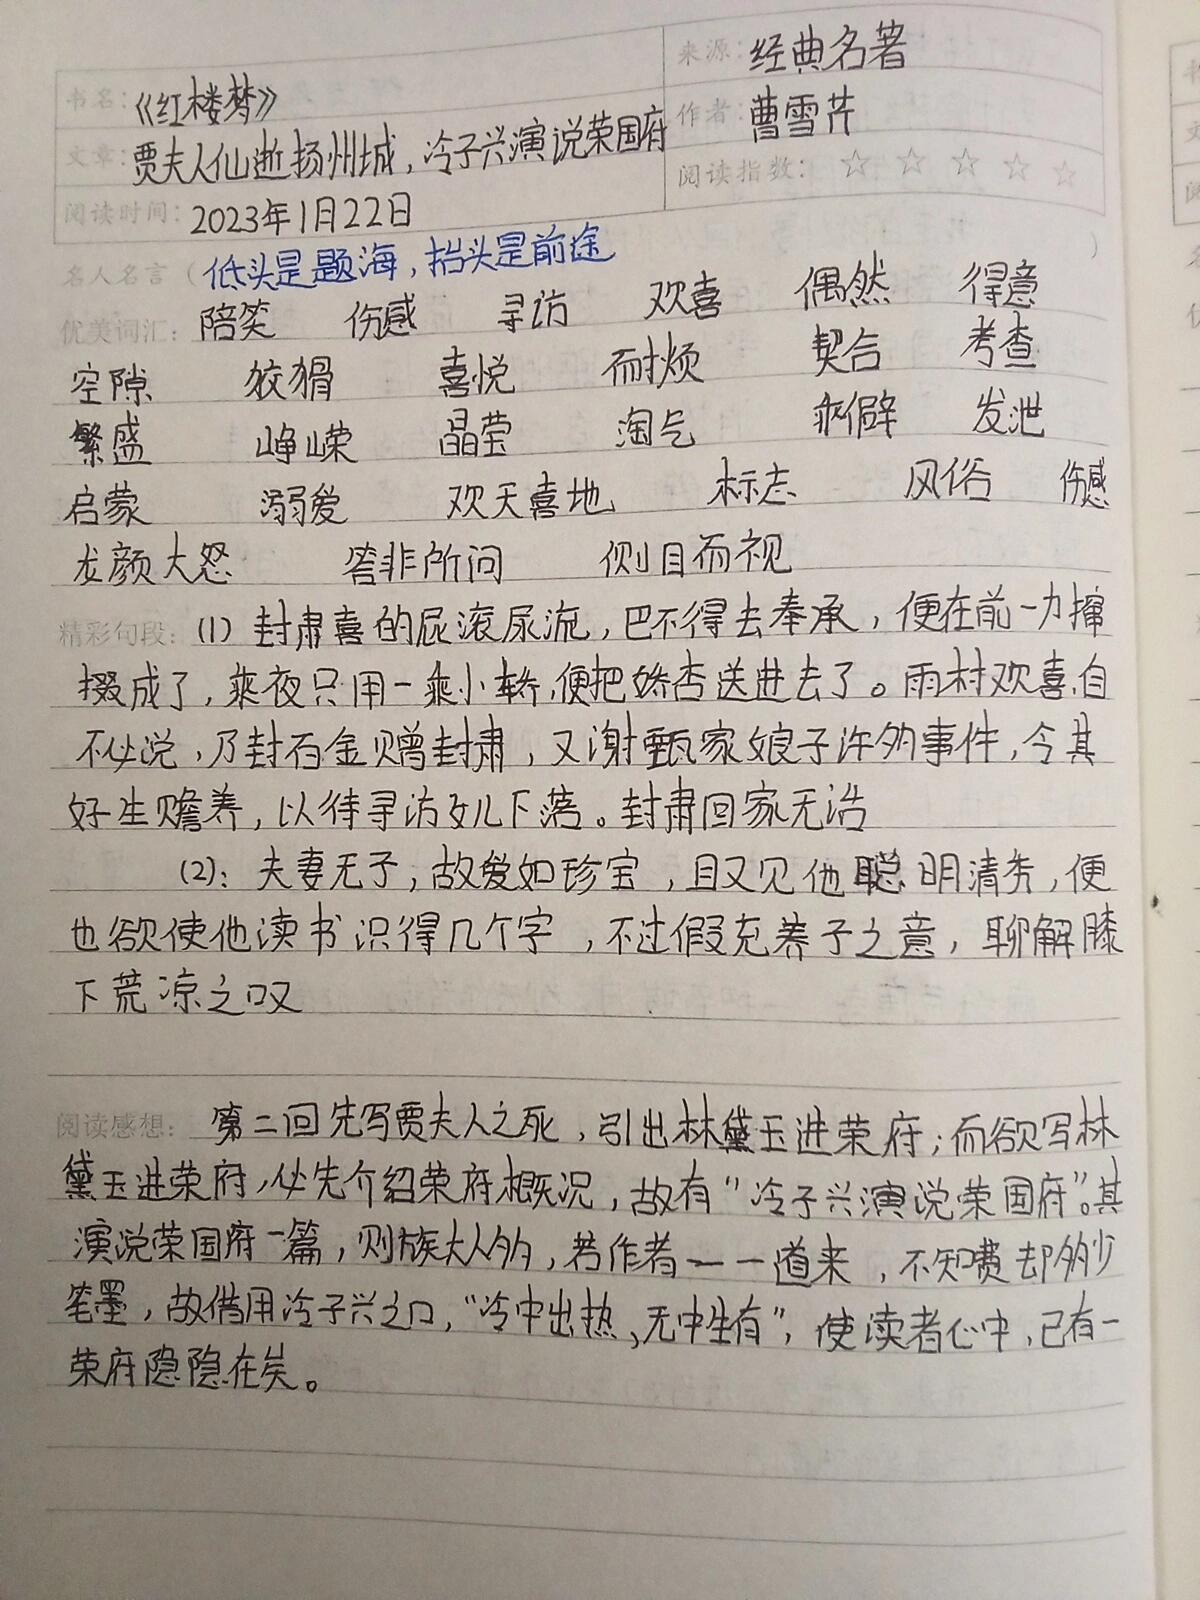 书名：《红楼梦》
来源：经典名著
文章：贾夫人仙逝扬州城，冷子兴演说荣国府
作者：曹雪芹
阅读时间：2023年1月22日
阅读指数：☆ ☆ ☆ ☆ ☆
名人名言（低头是题海，抬头是前途）
优美词汇：陪笑 伤感 寻访 欢喜 偶然 得意
空隙 狡猾 喜悦 耐烦 契合 考查
繁盛 峥嵘 晶莹 淘气 乖僻 发泄
启蒙 溺爱 欢天喜地 标志 风俗 伤感
龙颜大怒 答非所问 侧目而视
精彩句段：(1) 封肃喜的屁滚尿流，巴不得去奉承，便在前一力撺
掇成了，乘夜只用一乘小轿，便把娇杏送进去了。雨村欢喜，自
不必说，乃封百金赠封肃，又谢甄家娘子许多事件，令其
好生赡养，以待寻访女儿下落。封肃回家无话
(2)：夫妻无子，故爱如珍宝，且又见他聪明清秀，便
也欲使他读书识得几个字，不过假充养子之意，聊解膝
下荒凉之叹
阅读感想：第二回先写贾夫人之死，引出林黛玉进荣府；而欲写林
黛玉进荣府，必先介绍荣府概况，故有“冷子兴演说荣国府”。其
演说荣国府一篇，则族大人多，若作者一一道来，不知费却多少
笔墨，故借用冷子兴之口，“冷中出热，无中生有”，使读者心中，已有一
荣府隐隐在矣。